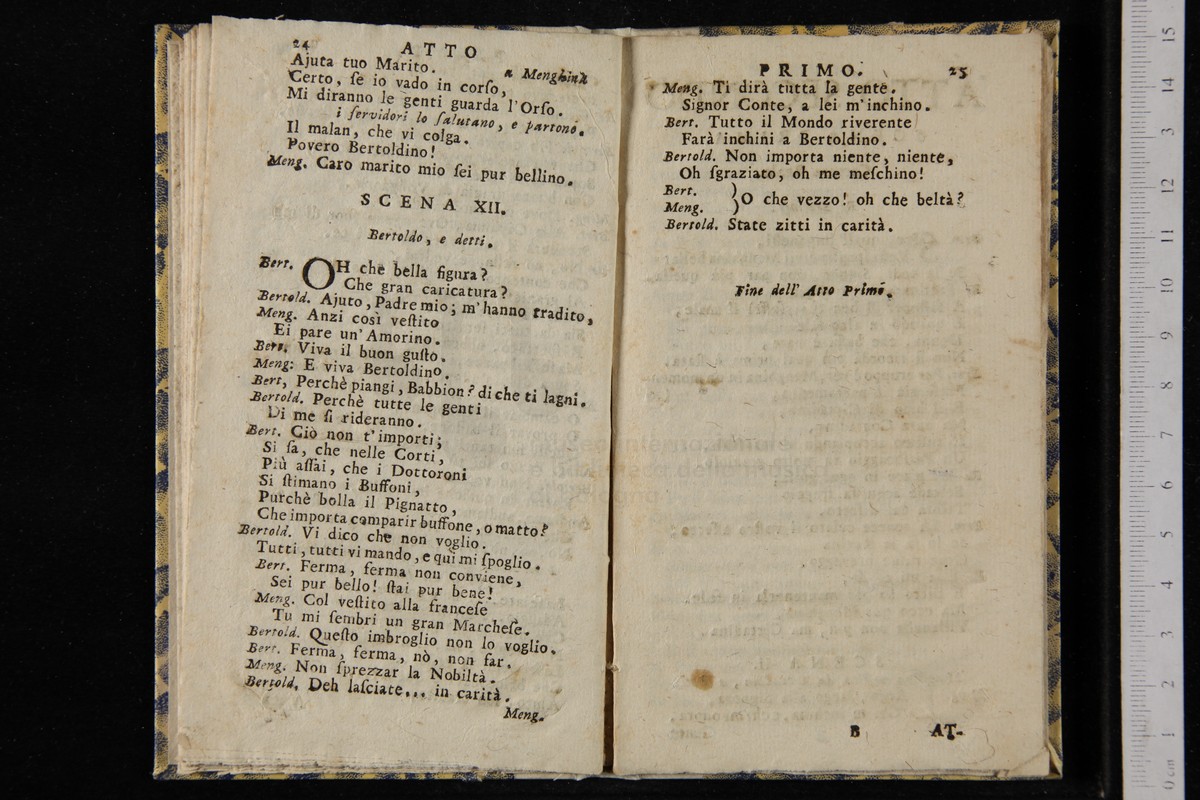 24 ATTO
Ajuta tuo Marito. a Menghina
Certo, ſe io vado in corſo,
Mi diranno le genti guarda l'Orſo.
i ſervidori lo ſalutano, e partono.
Il malan, che vi colga.
Povero Bertoldino!
Meng. Caro marito mio ſei pur bellino.
SCENA XII.
Bertoldo, e detti.
Bert. OH che bella figura?
Che gran caricatura?
Bertold. Ajuto, Padre mio; m'hanno tradito,
Meng. Anzi così veſtito
Ei pare un' Amorino.
Bert. Viva il buon guſto.
Meng: E viva Bertoldino.
Bert, Perchè piangi, Babbion? di che ti lagni.
Bertold. Perchè tutte le genti
Di me ſi rideranno.
Bert. Ciò non t'importi;
Si ſa, che nelle Corti,
Più aſſai, che i Dottoroni
Si ſtimano i Buffoni,
Purchè bolla il Pignatto,
Che importa comparir buffone, o matto?
Bertold. Vi dico che non voglio.
Tutti, tutti vi mando, e quì mi ſpoglio.
Bert. Ferma, ferma non conviene,
Sei pur bello! ſtai pur bene!
Meng. Col veſtito alla franceſe
Tu mi ſembri un gran Marcheſe.
Bertold. Queſto imbroglio non lo voglio.
Bert. Ferma, ferma, nò, non far.
Meng. Non ſprezzar la Nobiltà.
Bertold. Deh laſciate... in carità.
Meng.
PRIMO. 25
Meng. Ti dirà tutta la gente.
Signor Conte, a lei m'inchino.
Bert. Tutto il Mondo riverente
Farà inchini a Bertoldino.
Bertold. Non importa niente, niente,
Oh ſgraziato, oh me meſchino!
Bert.
Meng. )O che vezzo! oh che beltà?
Bertold. State zitti in carità.
Fine dell' Atto Primo.
B AT-